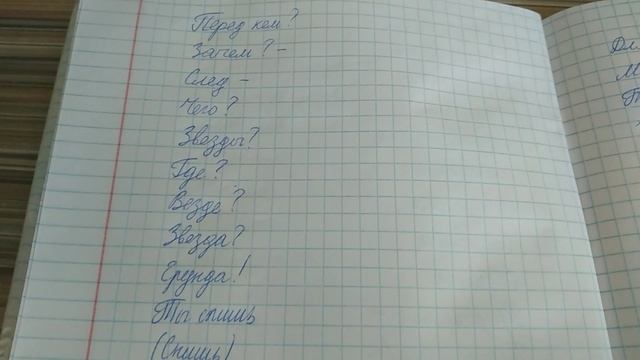 Перед кем?
Зачем? –
След –
Чего?
Звезды?
Где?
Везде?
Звезда?
Ерунда!
Ты спишь
(Спишь)